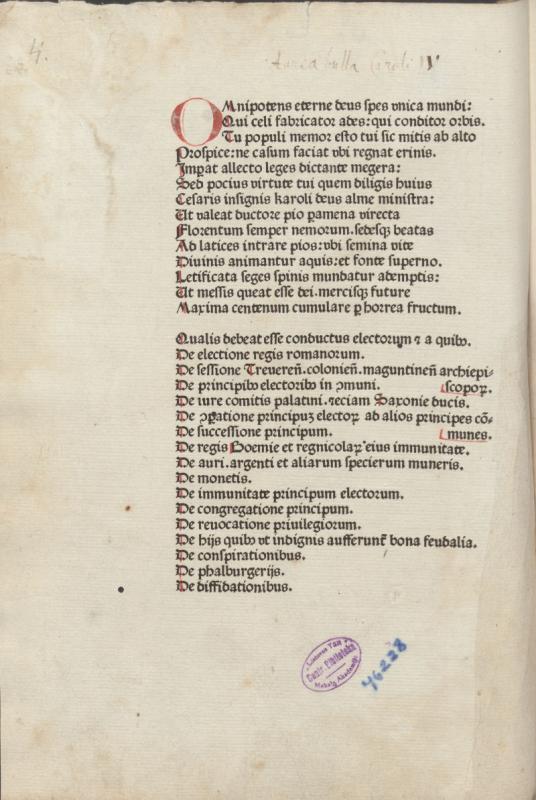 4.
aurea bulla Caroli IV
OMnipotens eterne deus spes vnica mundi:
Qui celi fabricator ades: qui conditor orbis.
Tu populi memor esto tui sic mitis ab alto
Prospice: ne casum faciat vbi regnat erinis.
Imꝑat allecto leges dictante megera:
Sed pocius virtute tui quem diligis huius
Cesaris insignis karoli deus alme ministra:
Ut valeat ductore pio ꝑ amena virecta
Florentum semper nemorum. sedesqꝫ beatas
Ad latices intrare pios: vbi semina vite
Diuinis animantur aquis: et fonte superno.
Letificata seges spinis mundatur ademptis:
Ut messis queat esse dei. mercisqꝫ future
Maxima centenum cumulare ꝑ horrea fructum.
Qualis debeat esse conductus electorum ⁊ a quibꝯ.
De electione regis romanorum.
De sessione Treuereñ. colonieñ. maguntineñ archiepi-
De principibꝯ electoribꝯ in ꝯmuni. scopoꝝ.
De iure comitis palatini. ⁊eciam Saxonie ducis.
De ꝯꝑatione principuꝫ electoꝝ ad alios principes cō-
De successione principum. munes.
De regis Boemie et regnicolaꝝ eius immunitate.
De auri. argenti et aliarum specierum muneris.
De monetis.
De immunitate principum electorum.
De congregatione principum.
De reuocatione priuilegiorum.
De hijs quibꝯ vt indignis aufferunt᷑ bona feudalia.
De conspirationibus.
De phalburgerijs.
De diffidationibus.
Centr. Biblioteka
46228